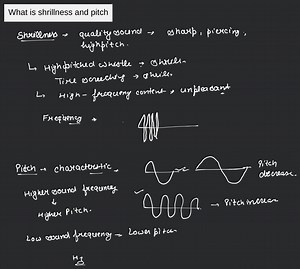 What is shrillness and pitch
Shrillness - quality sound → sharp, piercing,
high pitch.
↳ High pitched whistle → shrill
Tire screeching → shrill
↳ High-frequency content → unpleasant
Frequency →
Pitch → characteristic
Pitch
decrease.
Higher sound frequency
↓
Higher Pitch.
→ Pitch increase
Low sound frequency → Lower pitch
Hz